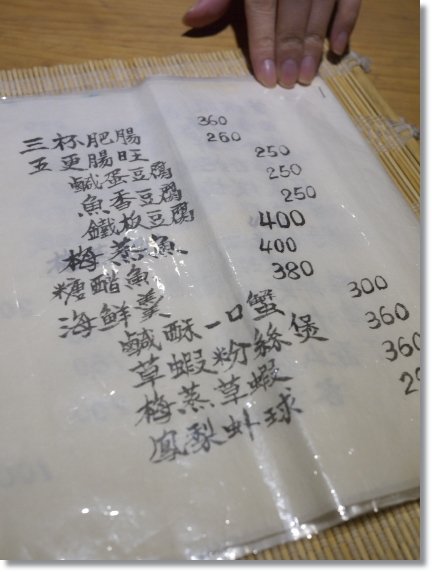 三杯肥腸 360
五更腸旺 260
鹹蛋豆腐 250
魚香豆腐 250
鐵板豆腐 250
梅蒸魚 400
糖醋魚 400
海鮮羹 380
鹹酥一口蟹 300
草蝦粉絲煲 360
梅蒸草蝦 360
鳳梨虾球